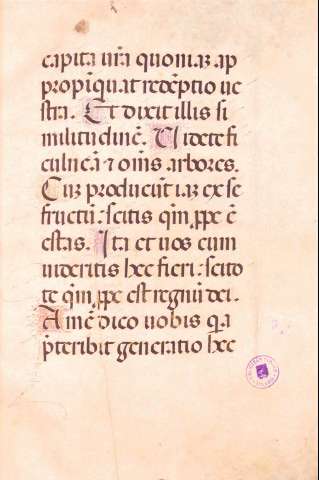 capita ur̃a quoniaꝫ ap
propĩquat redẽptio ue
stra. Et dixit illis si
militudinẽ. Videte fi
culneã ⁊ om̃s arbores.
Cuꝫ producũt iaꝫ ex se
fructũ: scitis qm̃ ꝓpe ẽ
estas. Ita et uos cum
uideritis hec fieri: scito
te qm̃ ꝓpe est regnũ dei.
Amẽ dico uobis q̃a
p̃teribit generatio hec